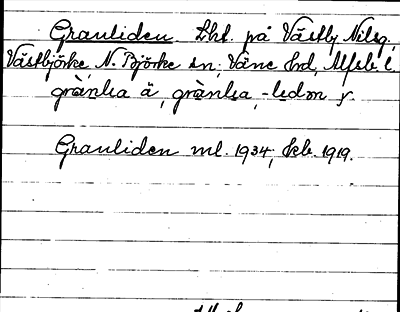 Granliden Lht. på Västby Nilsg.
Västbjörke, N. Björke sn, Väne hd, Älfsb. l.
grànlia ä, grànlia, -ledọn y.
Granliden ml. 1934, Ekb. 1919.